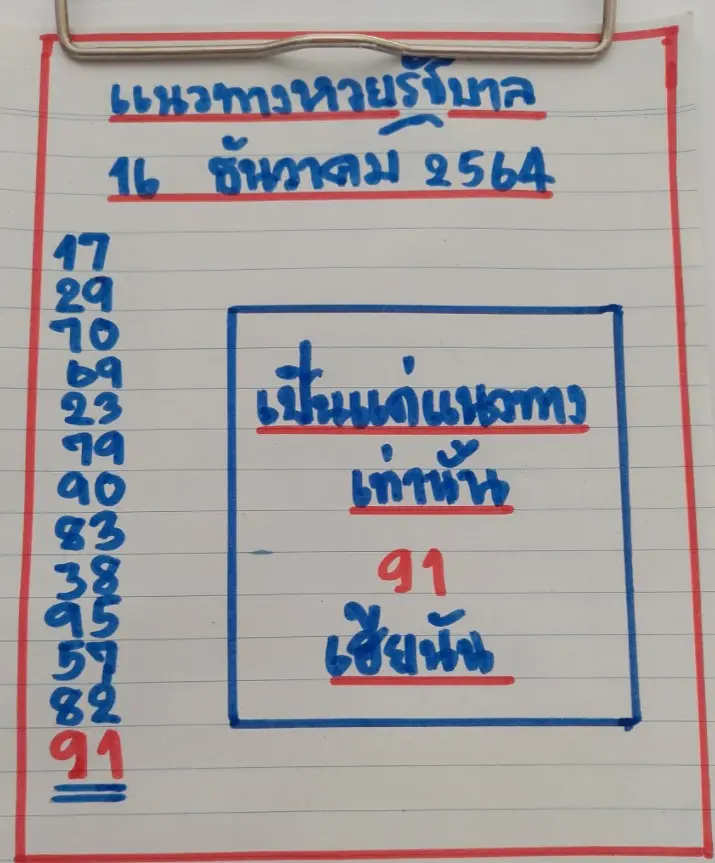 แนวทางหวยรัฐบาล
16 ธันวาคม 2564
17
29
70
69
23
79
90
83
38
95
57
82
91
เป็นแค่แนวทาง
เท่านั้น
91
เฮียนัน